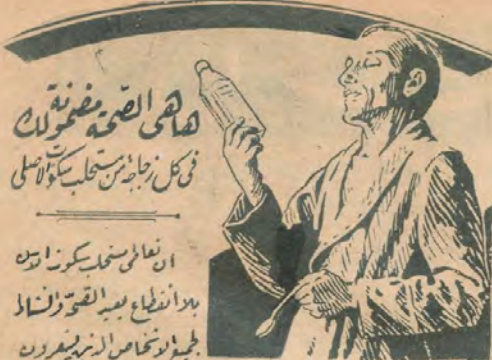 ها هى الصحة مضمونة لك
فى كل زجاجة من مستحلب سكوت الاصلى
ان تعاطى مستحلب سكوت
بلا انقطاع يعيد الصحة والنشاط
لجميع الاشخاص الذين يشعرون